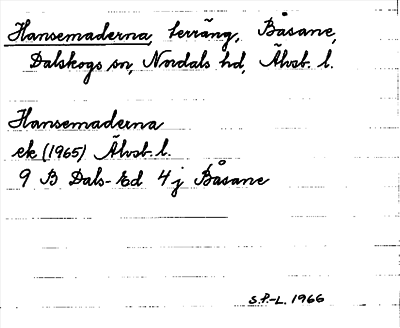 Hansemaderna, terräng, Båsane,
Dalskogs sn, Nordals hd, Älvsb. l.
Hansemaderna
ek (1965) Älvsb. l.
9 B Dals-Ed 4 j Båsane
S.F.-L. 1966